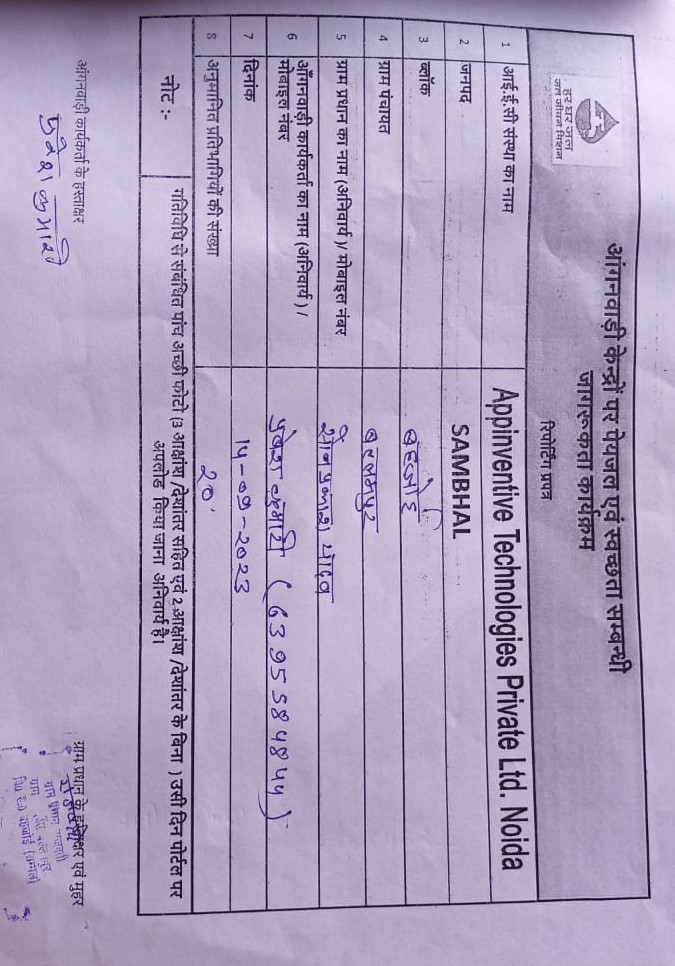 हर घर जल
जल जीवन मिशन
आंगनवाड़ी केन्द्रों पर पेयजल एवं स्वच्छता सम्बन्धी
जागरूकता कार्यक्रम
रिपोर्टिंग प्रपत्र
1 आई.ई.सी संस्था का नाम Appinventive Technologies Private Ltd. Noida
2 जनपद SAMBHAL
3 ब्लॉक बहजोई
4 ग्राम पंचायत
5 ग्राम प्रधान का नाम (अनिवार्य )/ मोबाइल नंबर यादव
6 आँगनवाड़ी कार्यकर्ता का नाम (अनिवार्य )/
मोबाइल नंबर प्रवेश कुमारी ( 6395584844 )
7 दिनांक 14-09-2023
8 अनुमानित प्रतिभागियों की संख्या 20
नोट :- गतिविधि से संबंधित पांच अच्छी फोटो (3 आक्षांय /देशांतर सहित एवं 2 आक्षांय /देशांतर के बिना ) उसी दिन पोर्टल पर
अपलोड किया जाना अनिवार्य है।
आंगनवाड़ी कार्यकर्ता के हस्ताक्षर
प्रवेश कुमारी
ग्राम प्रधान के हस्ताक्षर एवं मुहर